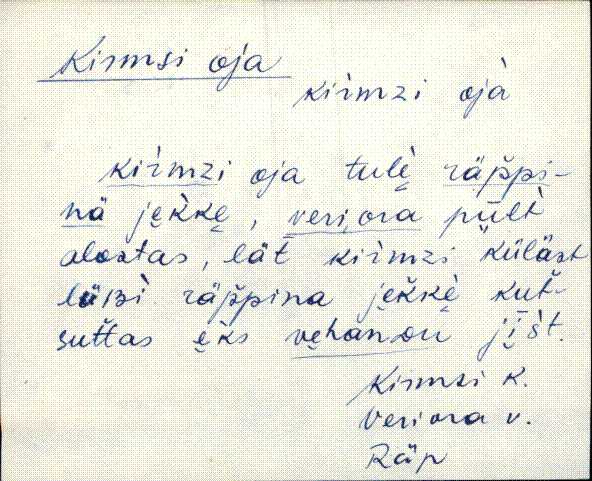 Kirmsi oja
kìrmzi ojà
kìrmzi oja tulè̮ räp̆pi-
nä je̮kke̮, veriora pūlt̀
alostas, lät̆ kìrmzi külä̀st
läʙì räp̆pina je̮kkè̮ kut̆-
sut̆tas e̮ks ve̮handu jī̮št.
Kirmsi k.
Veriora v.
Räp